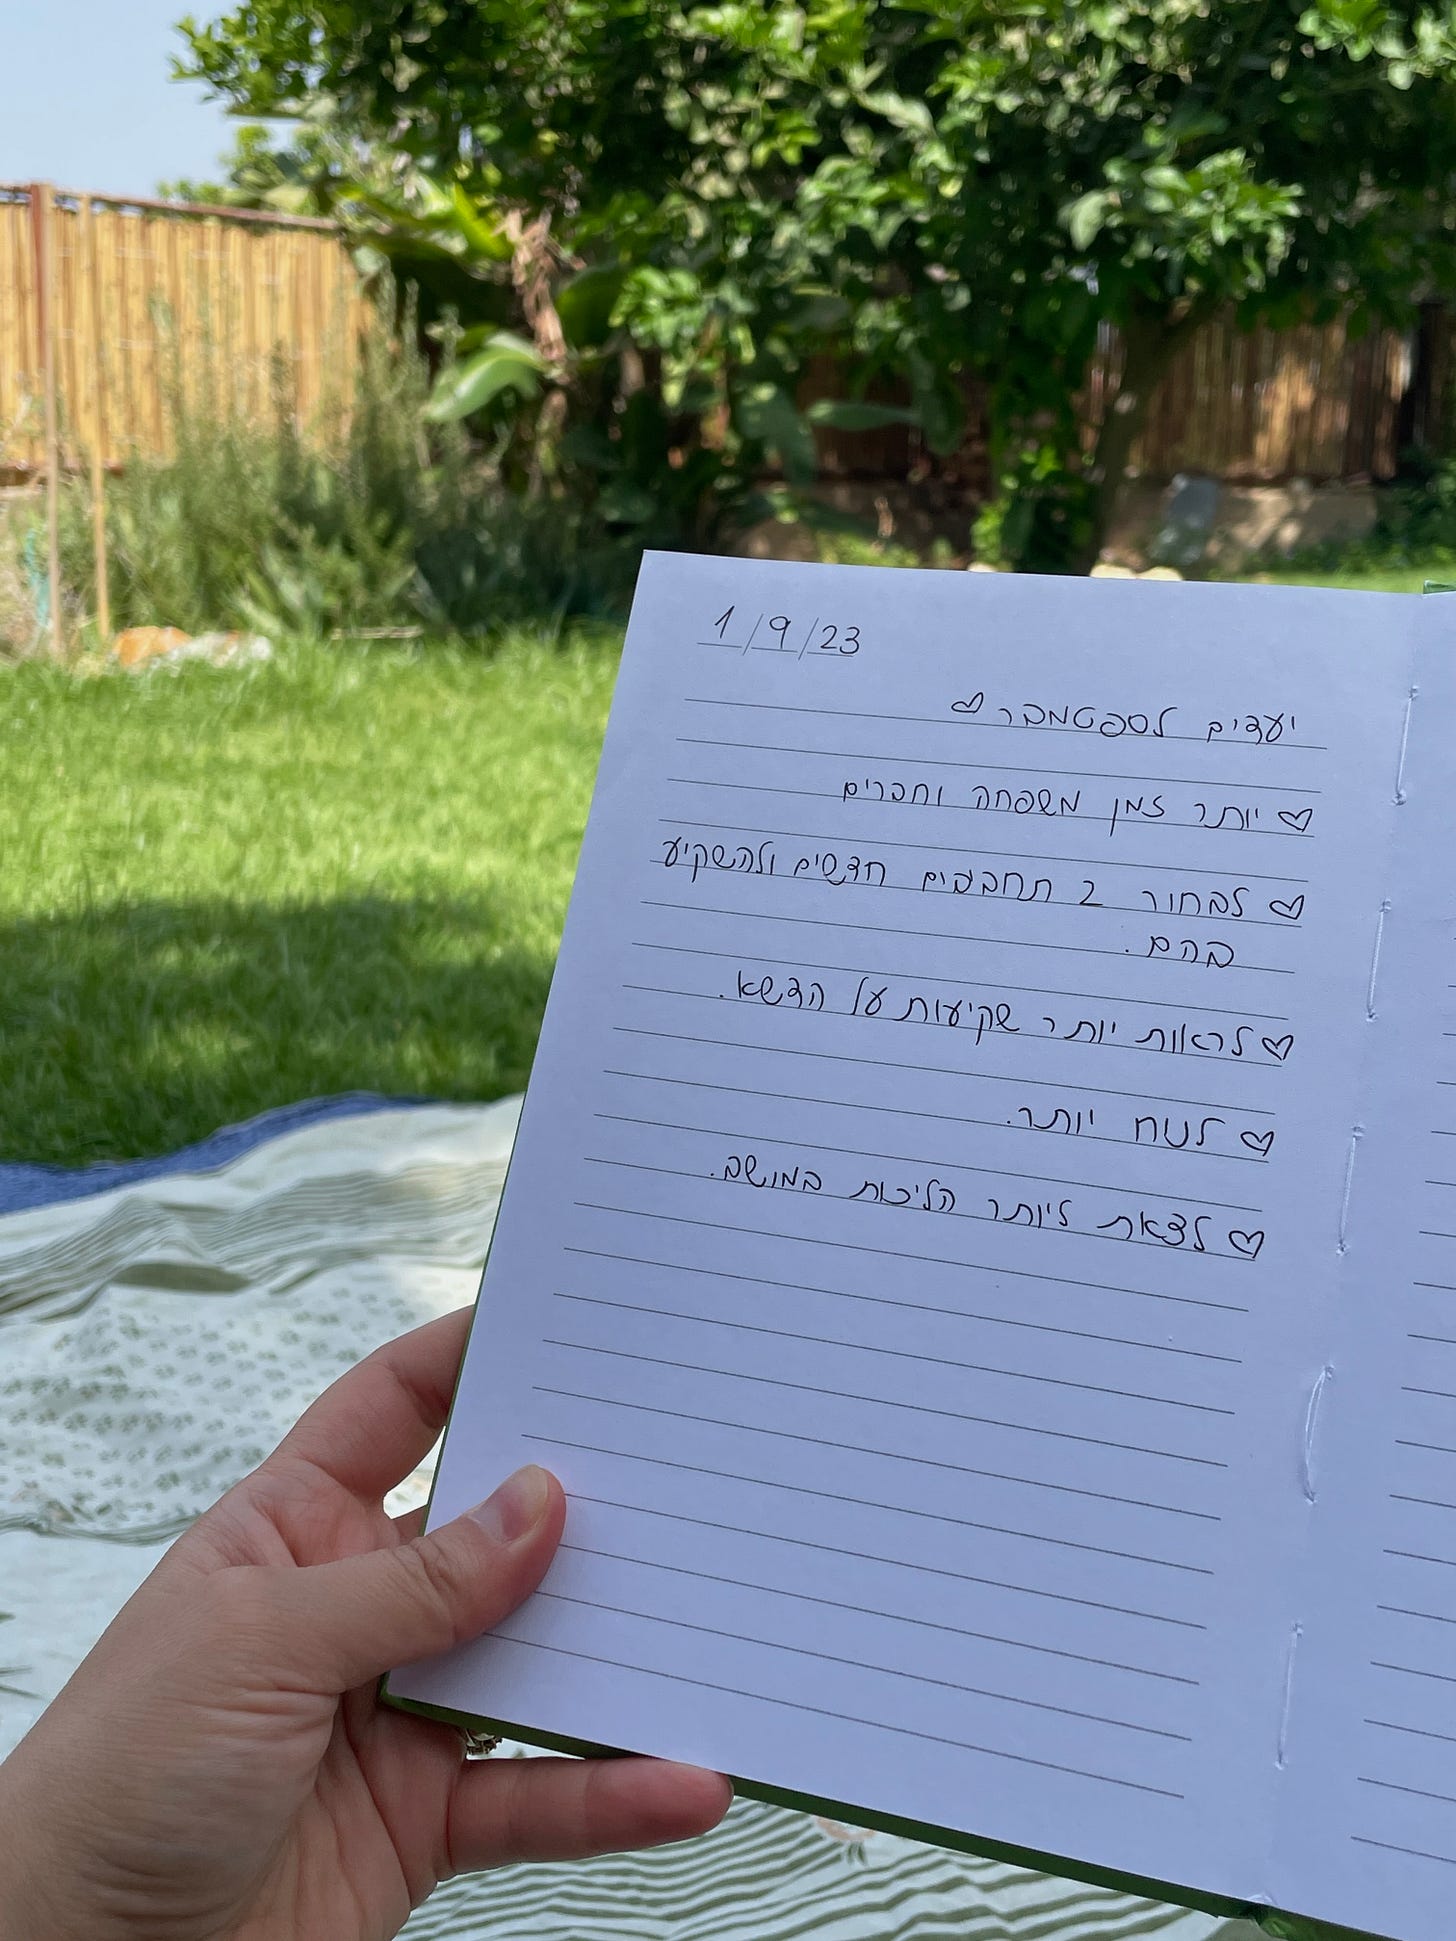 1/9/23
יעדים לספטמבר ♡
♡ יותר זמן משפחה וחברים
♡ לבחור 2 תחביבים חדשים ולהשקיע
בהם.
♡ לראות יותר שקיעות על הדשא.
♡ לנוח יותר.
♡ לצאת ליותר הליכות במושב.